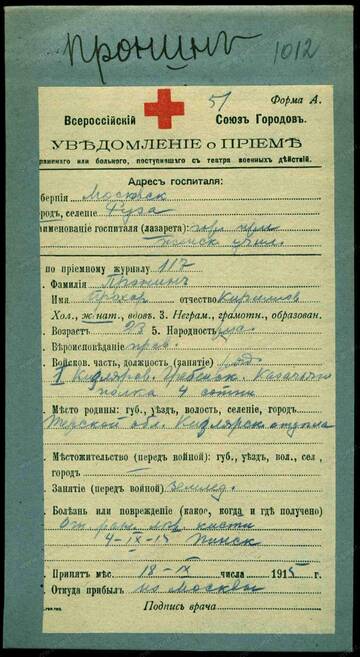 Пронинъ
1012
51 Форма А.
Всероссійскій Союзъ Городовъ.
УВѢДОМЛЕНІЕ о ПРІЕМѢ
раненаго или больного, поступившаго съ театра военныхъ дѣйствій.
Адресъ госпиталя:
бернія Московск
родъ, селеніе Руза
именованіе госпиталя (лазарета): гор. при
учил.
по пріемному журналу 117
Фамилія Пронинъ
Имя Прохор отчество Кирилов
Хол., жнат., вдовъ. 3. Неграм., грамотн., образован.
Возрастъ 23 5. Народность
Вѣроисповѣданіе прав.
Войсков. часть, должность (занятіе) ряд.
1 Кизляров. Гребенск. Казачьяго
полка 4 сотни
Мѣсто родины: губ., уѣздъ, волость, селеніе, городъ
Терской обл. Кизлярск отдѣла
Мѣстожительство (передъ войной): губ., уѣздъ, вол., сел.,
городъ
Занятіе (передъ войной) землед.
Болѣзнь или поврежденіе (какое, когда и гдѣ получено)
Ог. ран. лѣв. кисти
4-IX-15 Пинск
Принятъ мѣс. 18-IX числа 1915 г.
Откуда прибылъ из Москвы
Подпись врача